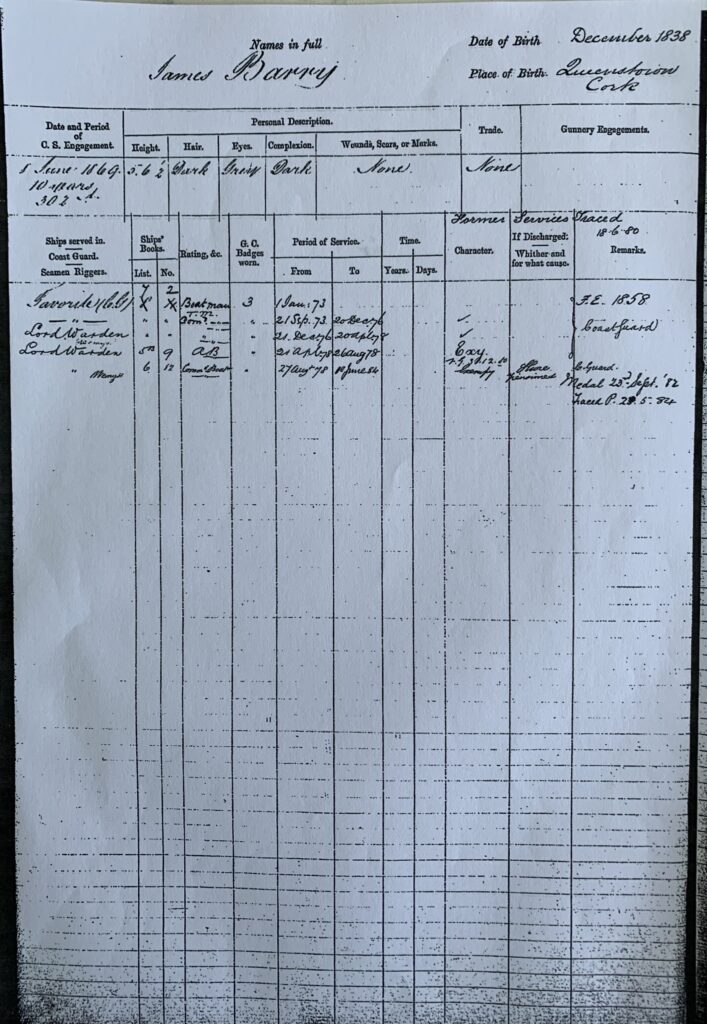 Names in full
Date of Birth December 1838
James Barry
Place of Birth. Queenstown
Cork
Date and Period of C. S. Engagement.
Personal Description.
Trade.
Gunnery Engagements.
Height. Hair. Eyes. Complexion. Wounds, Scars, or Marks.
1 June 1869. 5.6 1/2 Dark Grey Dark None None
10 years
302
Former Services Traced
18-6-80
Ships served in. Coast Guard. Seamen Riggers.
Ships' Books.
Rating, &c.
G. C. Badges worn.
Period of Service.
Time.
Character.
If Discharged; Whither and for what cause.
Remarks.
List. No. From To Years. Days.
7 2
Favorite (CG) Boatman 3 1 Jan: 73 F.E. 1858
" " " Com: " 21 Sep. 73 20 Dec 76 ✓ Coast Guard
Lord Warden " " " 21 Dec 76 20 Apl 78 ✓
Lord Warden 5 9 AB 21 Apl 78 26 Aug 78 Exy
" 6 12 Comd Boat 27 Augt 78 June 84 Exempy Shore pensioned C. Guard.
Medal 23rd Sept. '82
Traced P. 5-84